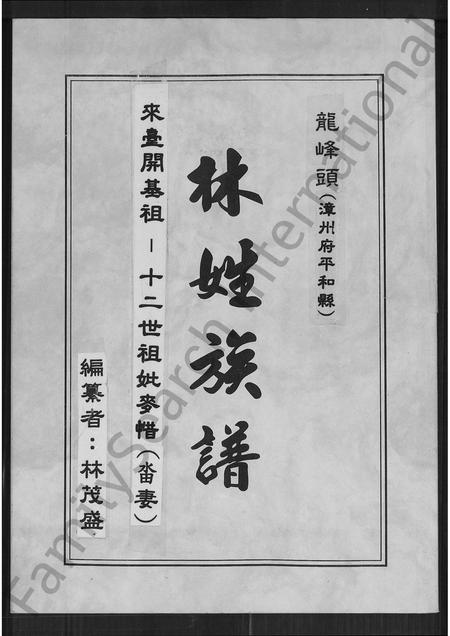 龍峰頭(漳州府平和縣)
林姓族譜
來臺開基祖-十二世祖妣麥惜(畓妻)
編纂者:林茂盛
FamilySearch International